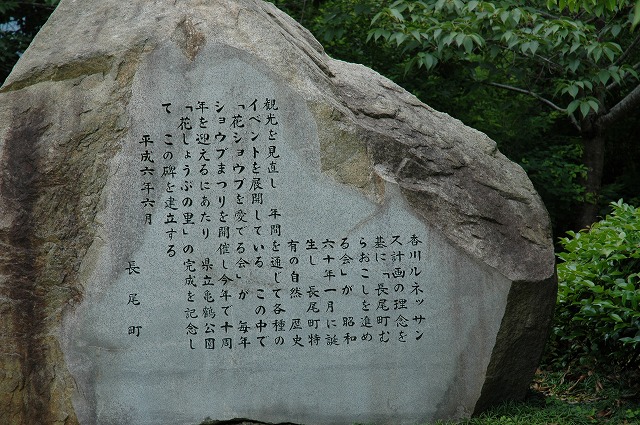 香川ルネッサン
ス計画の理念を
基に「長尾町む
らおこしを進め
る会」が　昭和
六十年一月に誕
生し　長尾町特
有の自然　歴史
観光を見直し　年間を通して各種の
イベントを展開している　この中で
「花ショウブを愛でる会」が　毎年
ショウブまつりを開催し今年で十周
年を迎えるにあたり　県立亀鶴公園
「花しょうぶの里」の完成を記念し
て　この碑を建立する
平成六年六月
長尾町